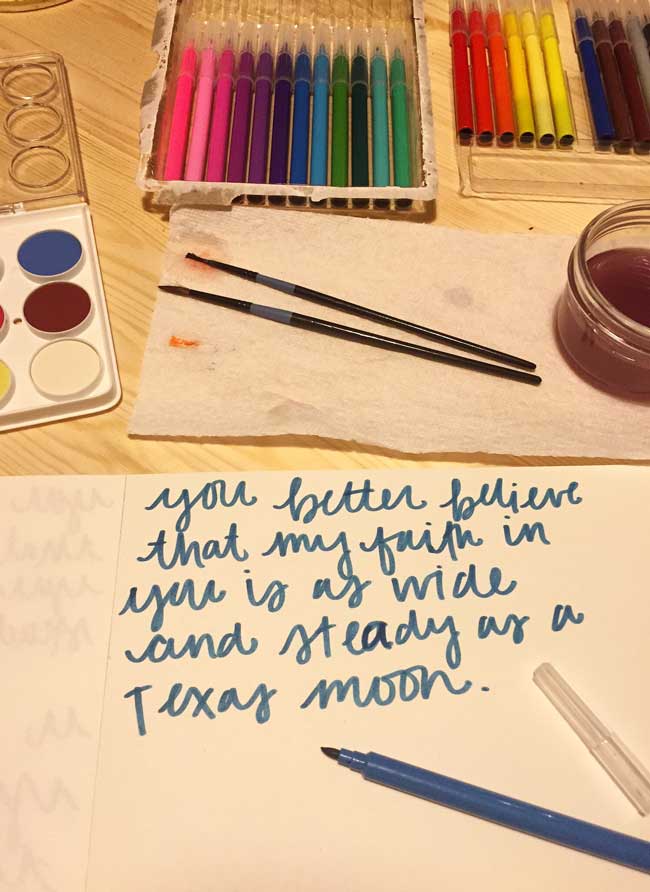 you better believe
that my faith in
you is as wide
and steady as a
Texas moon.